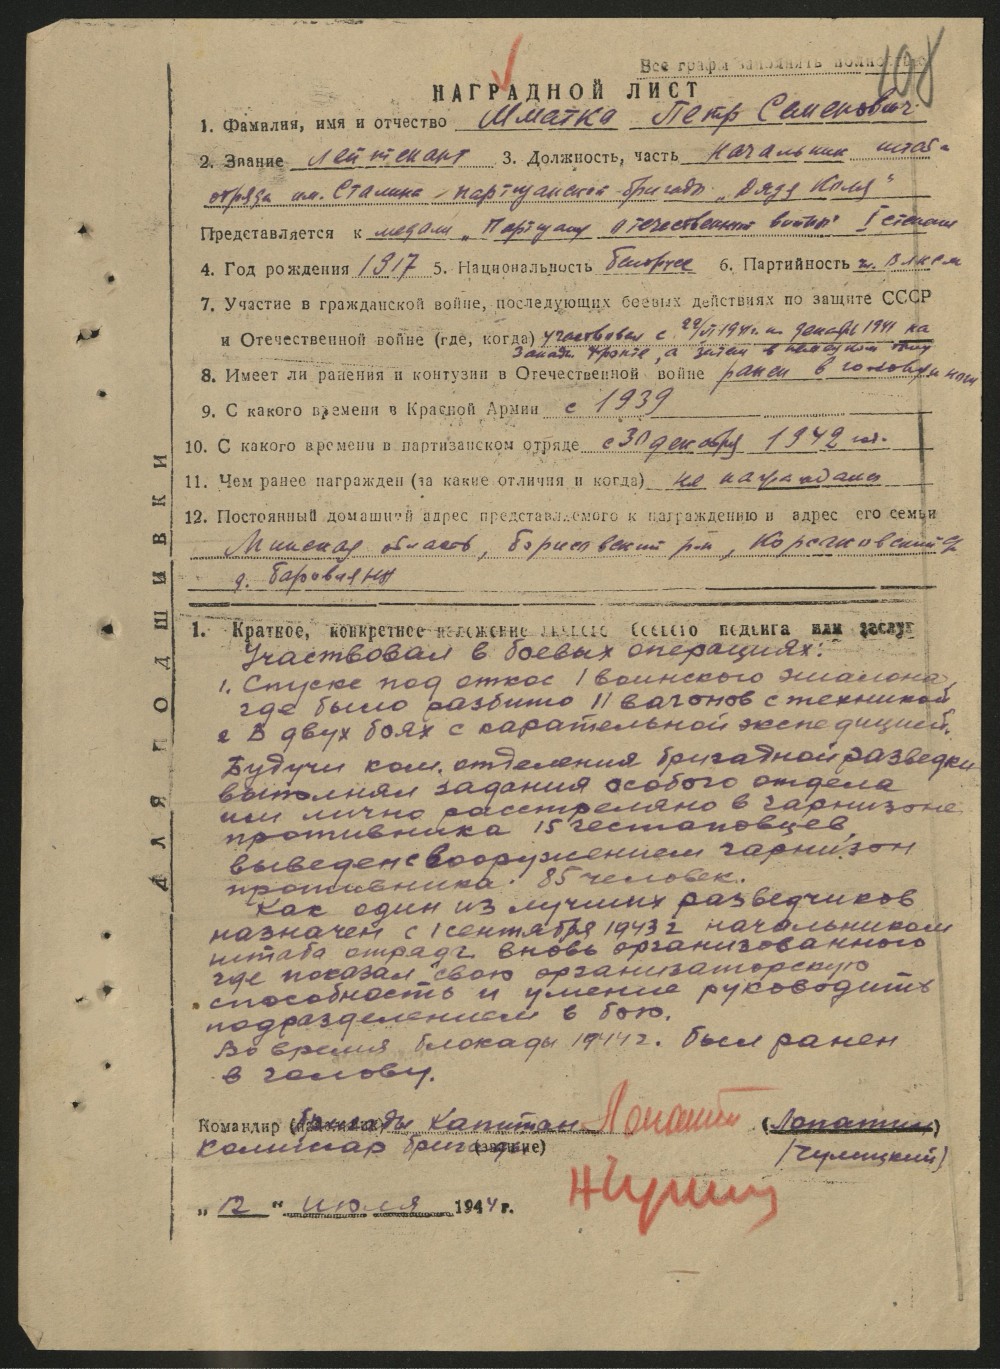 Все графы заполнять полностью
108
НАГРАДНОЙ ЛИСТ
1. Фамилия, имя и отчество Шматка Петр Семенович
2. Звание лейтенант 3. Должность, часть Начальник штаба
отряда им. Сталина партизанской бригады „Дядя Коля"
Представляется к медали „Партизану отечественной войны" I степени
4. Год рождения 1917 5. Национальность белорус 6. Партийность чл. ВЛКСМ
7. Участие в гражданской войне, последующих боевых действиях по защите СССР
и Отечественной войне (где, когда) участвовал с 22/VI 1941 г. по декабрь 1941 на
Запад. фронте, а затем в немецком тылу
8. Имеет ли ранения и контузии в Отечественной войне ранен в голову и ногу
9. С какого времени в Красной Армии с 1939
10. С какого времени в партизанском отряде с 30 декабря 1942 год.
11. Чем ранее награжден (за какие отличия и когда) не награждался
12. Постоянный домашний адрес представляемого к награждению и адрес его семьи
Минская область, Борисовский р-н,
д.
ДЛЯ ПОДШИВКИ
1. Краткое, конкретное изложение личного боевого подвига или заслуг
Участвовал в боевых операциях:
1. Спуске под откос 1 воинского эшалона,
где было разбито 11 вагонов с техникой
2 В двух боях с карательной экспедицией.
Будучи ком. отделения бригадной разведки
выполнял задания особого отдела
им лично расстреляно в гарнизоне
противника 15 гестаповцев,
выведен с вооружением гарнизон
противника 85 человек.
Как один из лучших разведчиков
назначен с 1 сентября 1943 г начальником
штаба отряда вновь организованного
где показал свою организаторскую
способность и умение руководить
подразделением в бою.
Во время блокады 1944 г. был ранен
в голову.
Командир бригады Капитан Лопатин (Лопатин)
Комиссар бригады (звание) /Чулицкий/
„12" июля 1944 г.